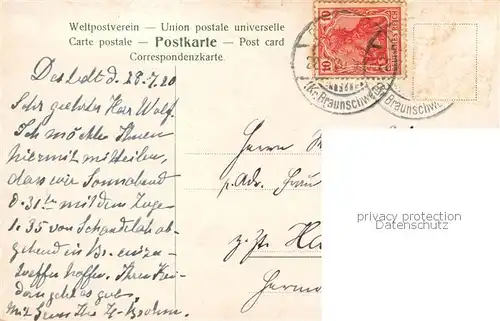 Weltpostverein — Union postale universelle
Carte postale — Postkarte — Post card
Correspondenzkarte.
10 10
(Kr. Braunschweig)
Braunschwe
Destedt d. 28.7.20
Sehr geehrter Herr Wolf.
Ich möchte Ihnen
hiermit mitteilen,
dass wir Sonnabend
d. 31ten mit dem Zuge
1.35 von Schandelah ab-
gehend in Br. einzu-
treffen hoffen. Ihren Kin-
dern geht es gut.
Mit Gruss Ihr
Herrn
p. Adr. Frau
z. Zt. Ha
Herm
privacy protection
Datenschutz